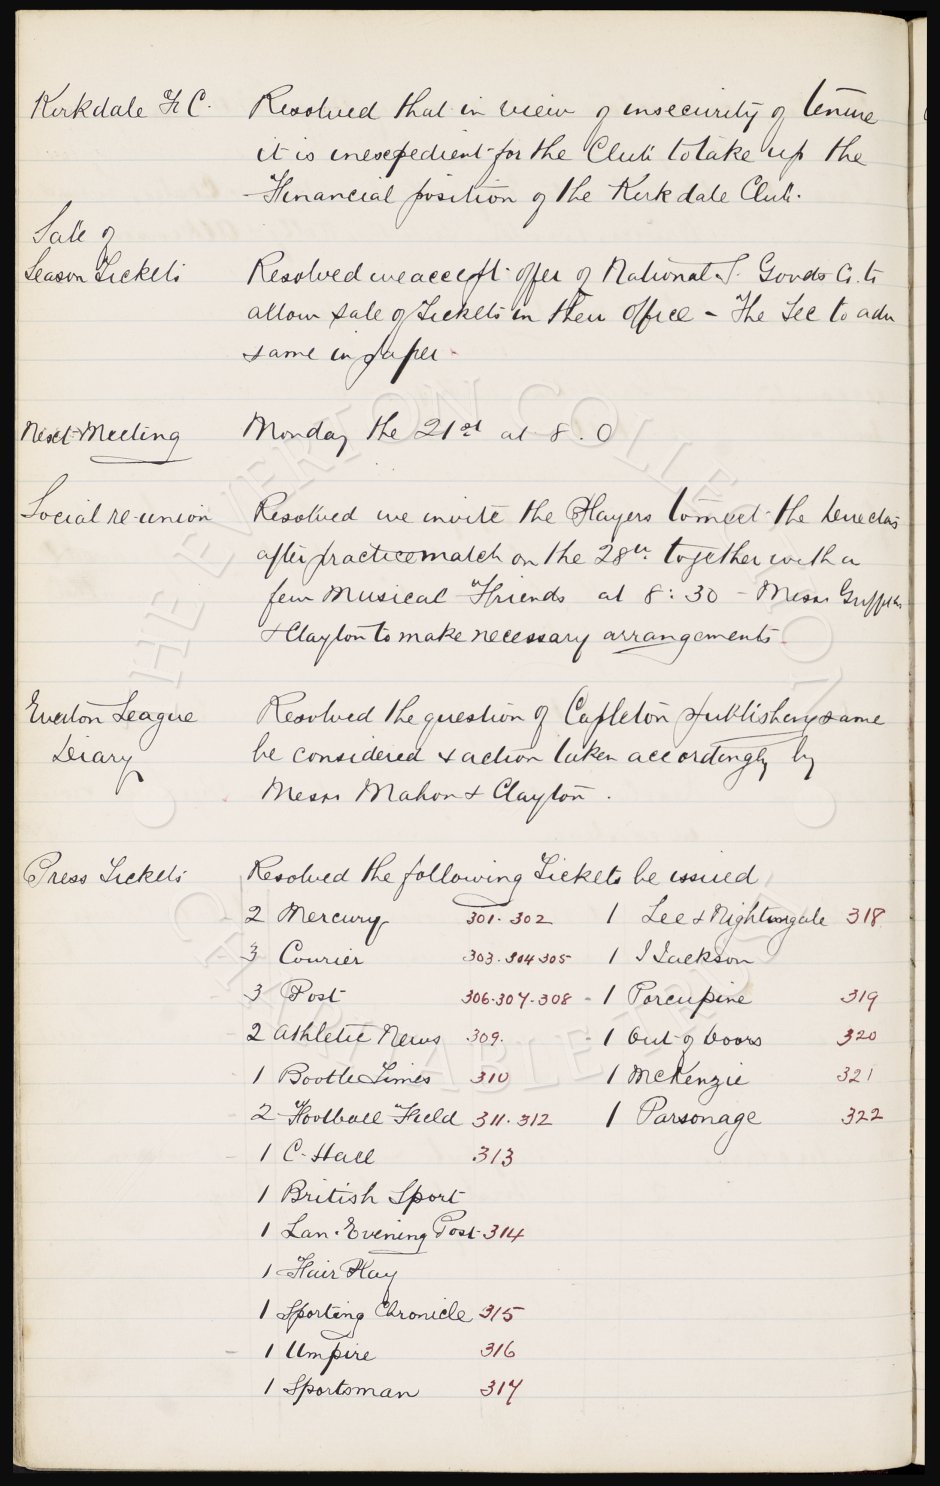 Kirkdale F. C. Resolved that in view of insecurity of tenure
it is inexpedient for the Club to take up the
Financial position of the Kirkdale Club.
Sale of
Season Tickets Resolved we accept offer of National S. Goods Co. to
allow sale of Tickets in their office - The Sec to adv
same in paper.
Next Meeting Monday the 21st at 8.0
Social re-union Resolved we invite the Players to meet the Directors
after practice match on the 28th together with a
few Musical Friends at 8:30 - Messrs Griffiths
& Clayton to make necessary arrangements.
Everton League Resolved the question of & publishing same
Diary be considered & action taken accordingly by
Messrs Mahon & Clayton.
Press Tickets Resolved the following Tickets be issued
2 Mercury 301. 302 1 Lee & Nightingale 318
3 Courier 303. 304 305 1 J Jackson
3 Post 306. 307. 308 - 1 Porcupine 319
2 Athletic News 309. - 1 Out of Doors 320
1 Bootle Times 310 1 McKenzie 321
2 Football Field 311. 312 1 Parsonage 322
1 C. Hall 313
1 British Sport
1 Lan. Evening Post 314
1 Fair Play
1 Sporting Chronicle 315
1 Umpire 316
1 Sportsman 317
© THE EVERTON COLLECTION
CHARITABLE TRUST